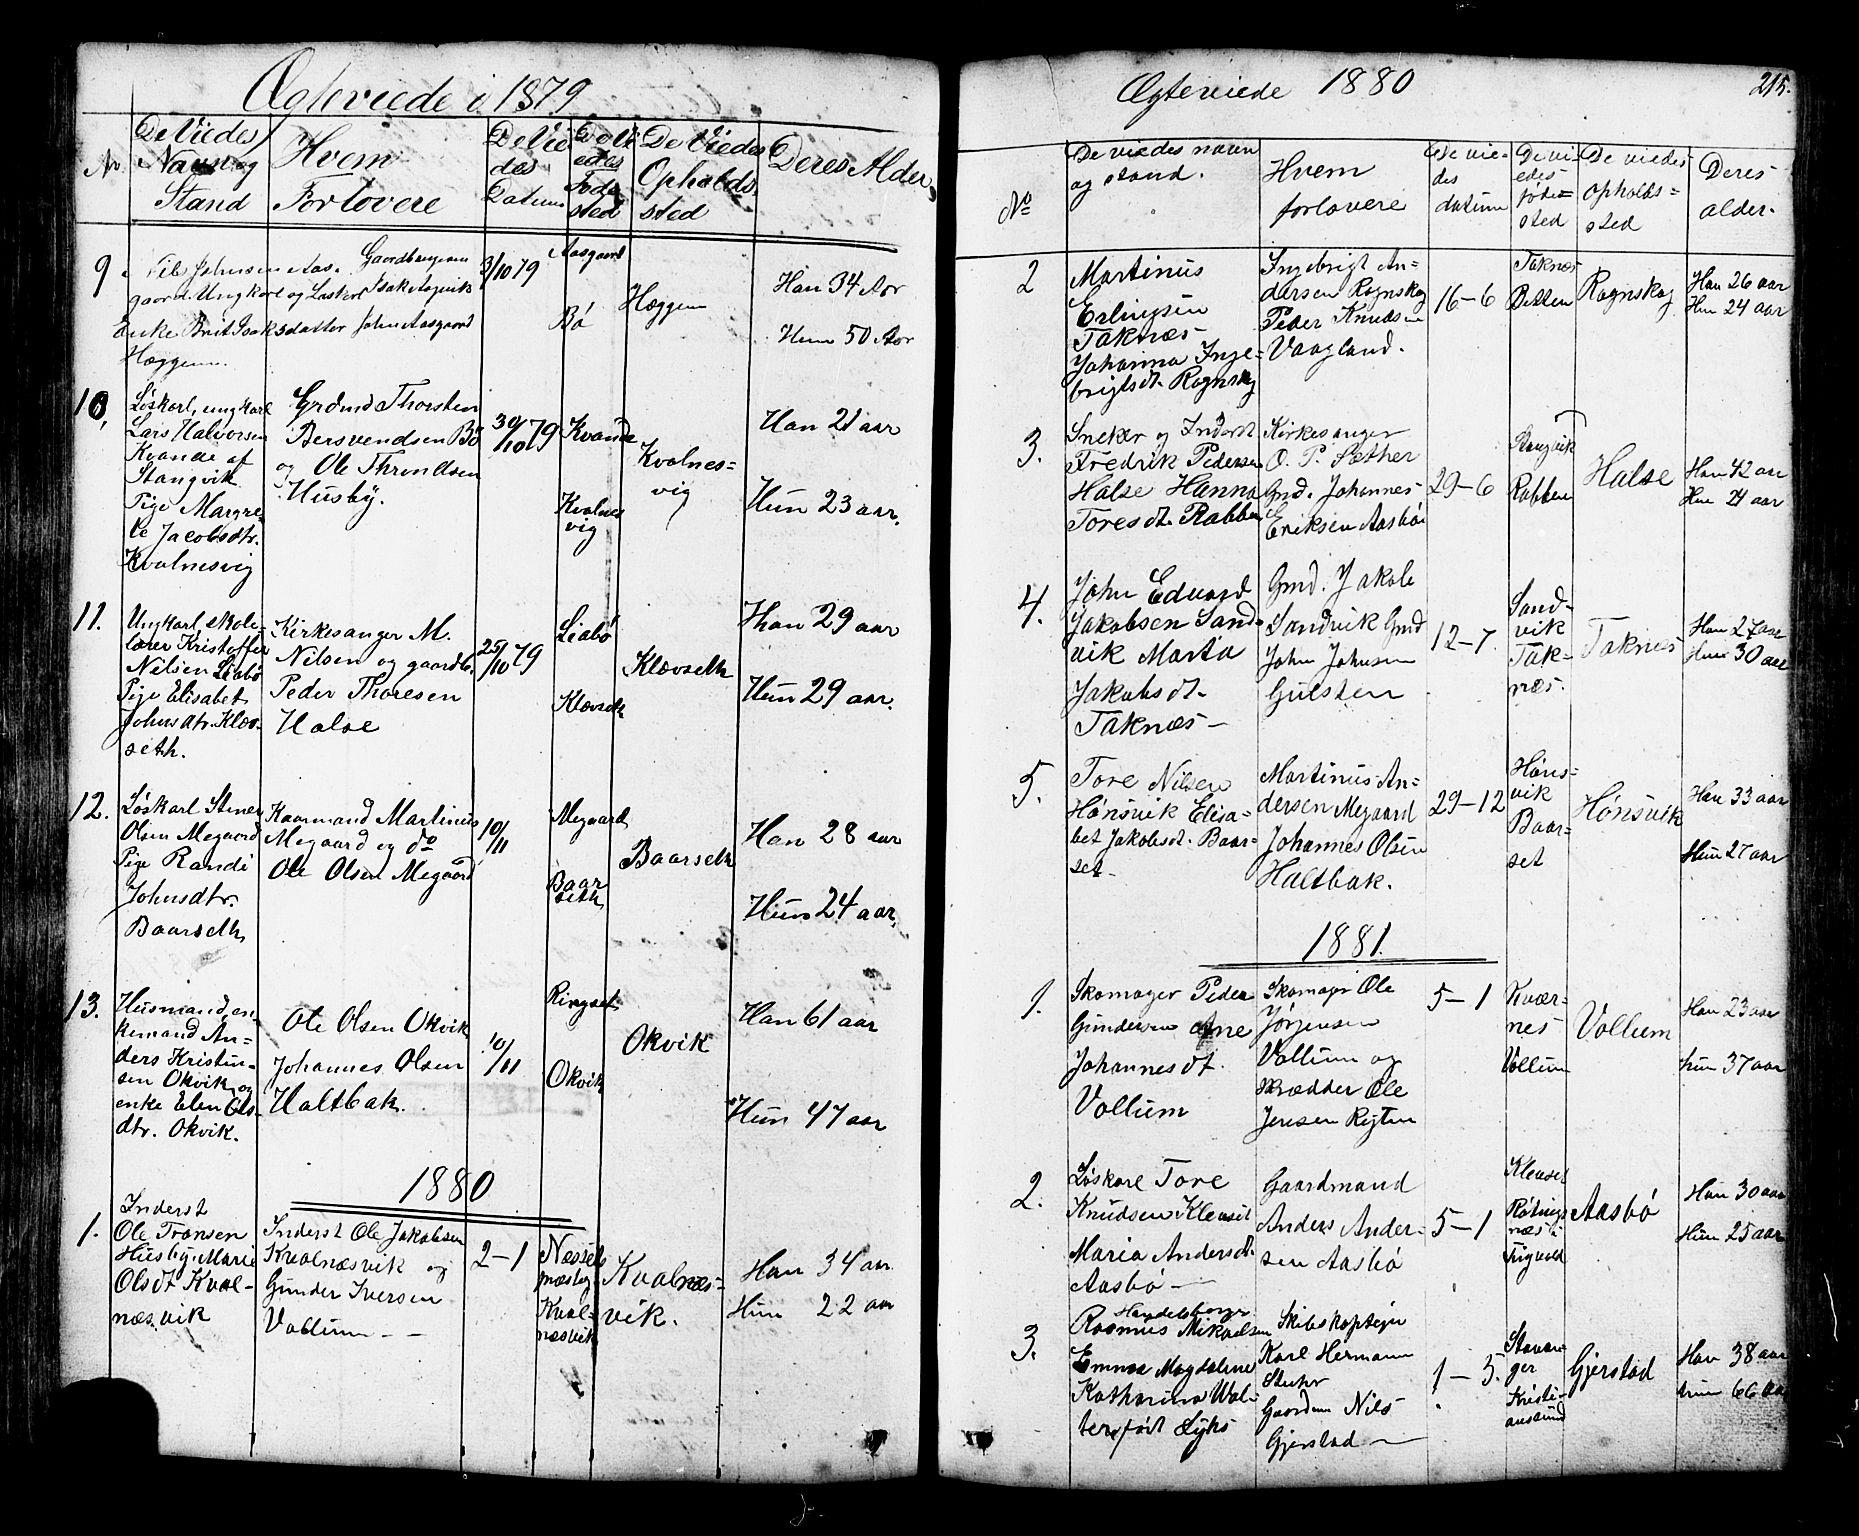 Ægteviede i 1879
No
De Viedes
Navn og
Stand
Hvem
Forlovere
De Vie
des
Datum
De Vi
edes
Føde
sted
De Viedes
Opholds
sted
Deres Alder
9
Nils Johnsen Aas-
gaard Ungkarl og
Enke Brit Isaksdatter
Hæggem
Gaardbrugerne
Isak Aasvik
John Aasgaard
3/10 79
Aasgaard
Bö
Hæggem
Han 34 Aar
Hun 50 Aar
10,
Löskarl, ungkarl
Lars Halvorsen
Kvande af
Stangvik
Pige Margre-
te Jacobsdtr.
Kvalnesvig
Grdmd Thorsten
Bersvendsen Bö
og Ole Throndsen
Husby.
30/10 79
Kvande
Kvalnes
vig
Kvalnes=
vig
Han 21 aar
Hun 23 aar.
11.
Ungkarl skole-
lærer Kristoffer
Nilsen Liabö
Pige Elisabet
Johnsdtr. Klæv-
seth.
Kirkesanger M.
Nilsen og gaardb.
Peder Thoresen
Halse
25/10 79
Liabö
Klævseth
Klævseth
Han 29 aar
Hun 29 aar.
12.
Löskarl Stener
Olsen Megaard
Pige Randi
Johnsdtr.
Baarseth
Kaarmand Martinus
Megaard og do
Ole Olsen Megaard
10/11
Megaard
Baar
seth
Baarseth
Han 28 aar
Hun 24 aar.
13.
Husmand, en-
kemand An=
ders Kristen-
sen Okvik og
enke Elen Ols-
dtr. Okvik.
Ole Olsen Okvik
Johannes Olsen
Haltbak.
10/11
Ringset
Okvik
Okvik
Han 61 aar
Hun 47 aar
1880
1.
Inderst
Ole Tronsen
Husby. Marie
Olsdt Kval-
næsvik
Inderst Ole Jakobsen
Kvalnæsvik og
Gunder Iversen
Vollum -
2-1
Næssets
præstegj.
Kval=
næsvik
Kvalnæs-
vik.
Han 34 aar.
Hun 22 aar
Ægteviede 1880
215.
No
De viedes navn
og stand.
Hvem
forlovere
De vie-
des
datum
De vi-
edes
føde=
sted
De viedes
opholds=
sted
Deres
alder.
2
Martinus
Erlingsen
Taknæs
Johanna Inge-
brigtsdt. Rognskog
Ingebrigt An=
dersen Rognskog
Peder Knudsen
Vaagland.
16-6
Taknæs
Betten
Rognskog
Han 26 aar
Hun 24 aar
3.
Sneker og Inderst
Fredrik Pedersen
Halse Hanna
Toresdt. Rabben
Kirkesanger
O. P. Sæther
Gmd. Johannes
Eriksen Aasbö
29-6
Stangvik
Rabben
Halse
Han 42 aar
Hun 24 aar
4.
John Edvard
Jakobsen Sand-
vik Marta
Jakobsdt.
Taknæs -
Gmd. Jakob
Sandvik Gmd
John Johnsen
Gulsten
12-7.
Sand-
vik
Tak-
næs.
Taknæs
Han 27 aar
Hun 30 aar
5.
Tore Nilsen
Hönsvik Elisa-
bet Jakobsdt. Baar-
set-
Martinus An-
dersen Megaard
Johannes Olsen
Haltbak.
29-12
Høns=
vik
Baar-
set
Hönsvik
Han 33 aar
Hun 27 aar
1881.
1.
Skomager Peder
Gundersen
Johannesdt.
Vollum
Skomager Ole
Jörgensen
Vollum og
Skrædder Ole
Jensen
5-1
Kvær-
nes
Vollum
Vollum
Han 23 aar
hun 37 aar
2.
Löskarl Tore
Knudsen Klevset
Maria Andersdt.
Aasbö -
Gaardmand
Anders Ander-
sen Aasbö
5-1
Klevset
næs i
Aasbö
Han 30 aar
Hun 25 aar
3.
Handelsborger
Rasmus Mikaelsen
Emma Magdalene
Katharina Wol-
ter, født
Skibskaptejn
Karl Hermann
Gaardm Nils
Gjerstad -
1-5.
Stavan-
ger
Kristi-
ansund
Gjerstad
Han 38 aar
hun 66 aar